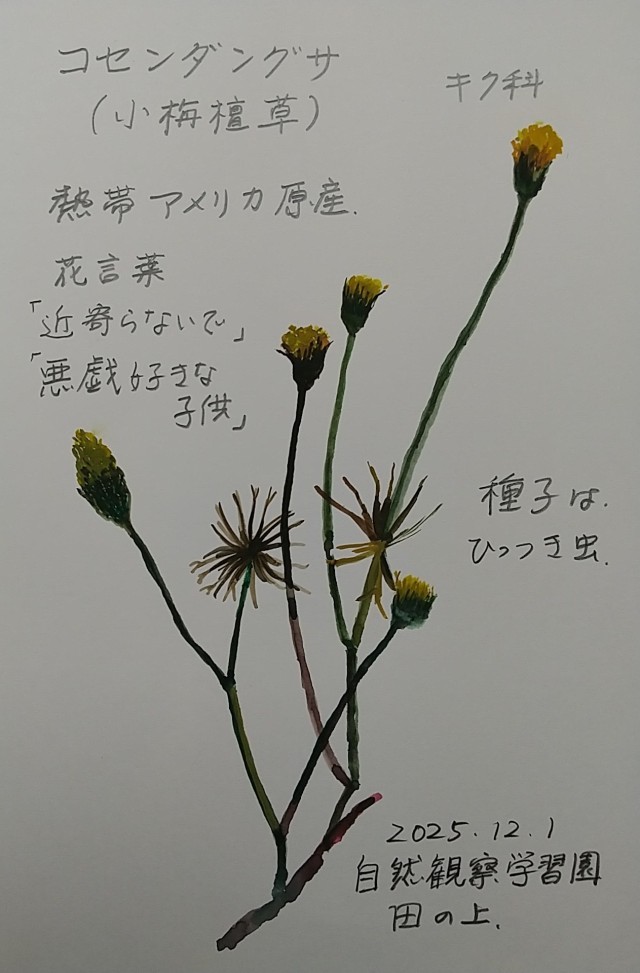 コセンダングサ
(小栴檀草)
キク科
熱帯アメリカ原産.
花言葉
「近寄らないで」
「悪戯好きな
子供」
種子は.
ひっつき虫.
2025.12.1
自然観察学習園
田の上.